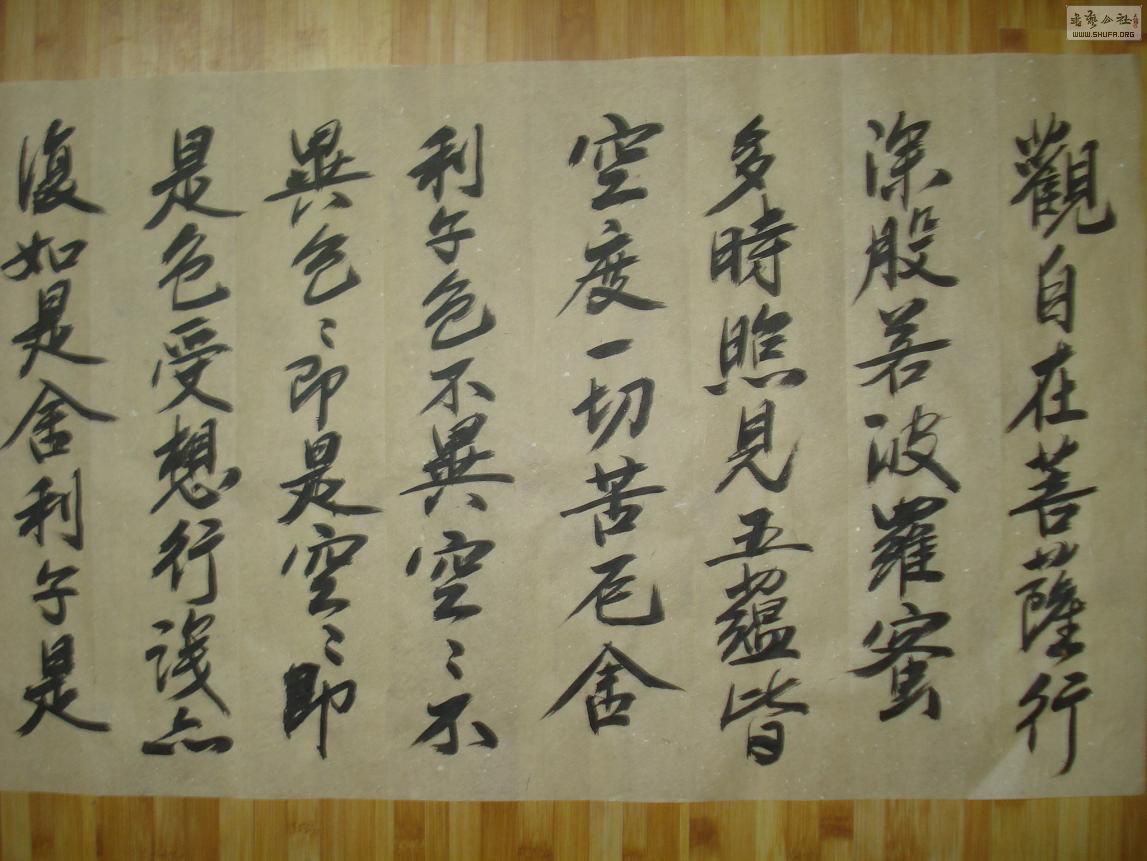 觀自在菩薩行
深般若波羅蜜
多時照見五蘊皆
空度一切苦厄舍
利子色不異空〻不
異色〻即是空〻即
是色受想行識亦
復如是舍利子是
書藝公社
WWW.SHUFA.ORG